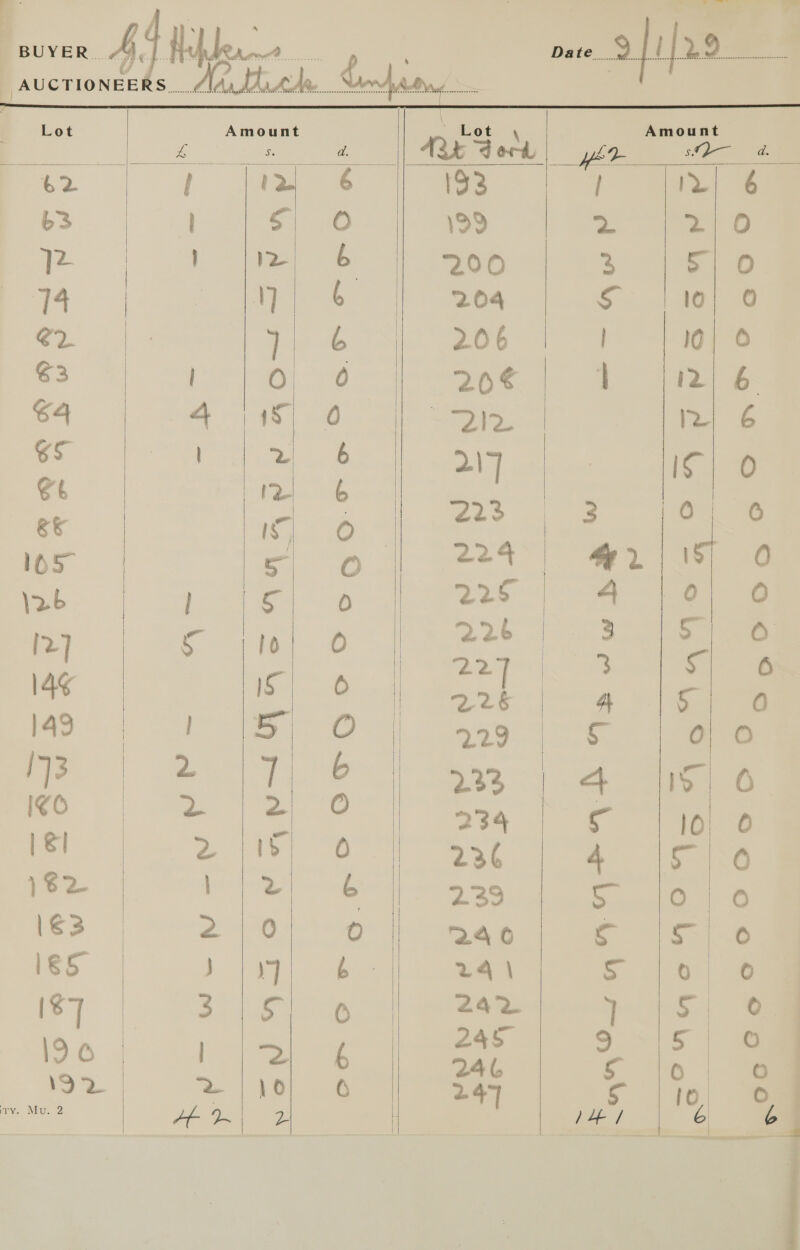 BUYER
Date 9/1/29
AUCTIONEERS
Lot Amount
£ s. d.
62 1 12 6
63 1 5 0
72 1 12 6
74 17 6
82 7 6
83 1 0 0
84 4 15 0
85 1 2 6
86 12 6
88 15 0
105 5 0
126 1 5 0
127 5 10 0
148 15 0
149 1 5 0
173 2 7 6
180 2 2 0
181 2 15 0
182 1 2 6
183 2 0 0
185 1 17 6
187 3 5 0
190 1 2 6
192 2 10 0
42 2
Lot Amount
42 s. 2 d.
193 1 12 6
199 2 2 0
200 3 5 0
204 5 10 0
206 1 10 0
208 1 12 6
212 12 6
217 15 0
223 3 0 0
224 2 15 0
225 4 0 0
226 3 5 0
227 3 5 0
228 4 5 0
229 5 0 0
233 4 15 0
234 5 10 0
236 4 5 0
239 5 0 0
240 5 5 0
241 5 0 0
242 7 5 0
245 9 5 0
246 5 0 0
247 5 10 0
141 6 6